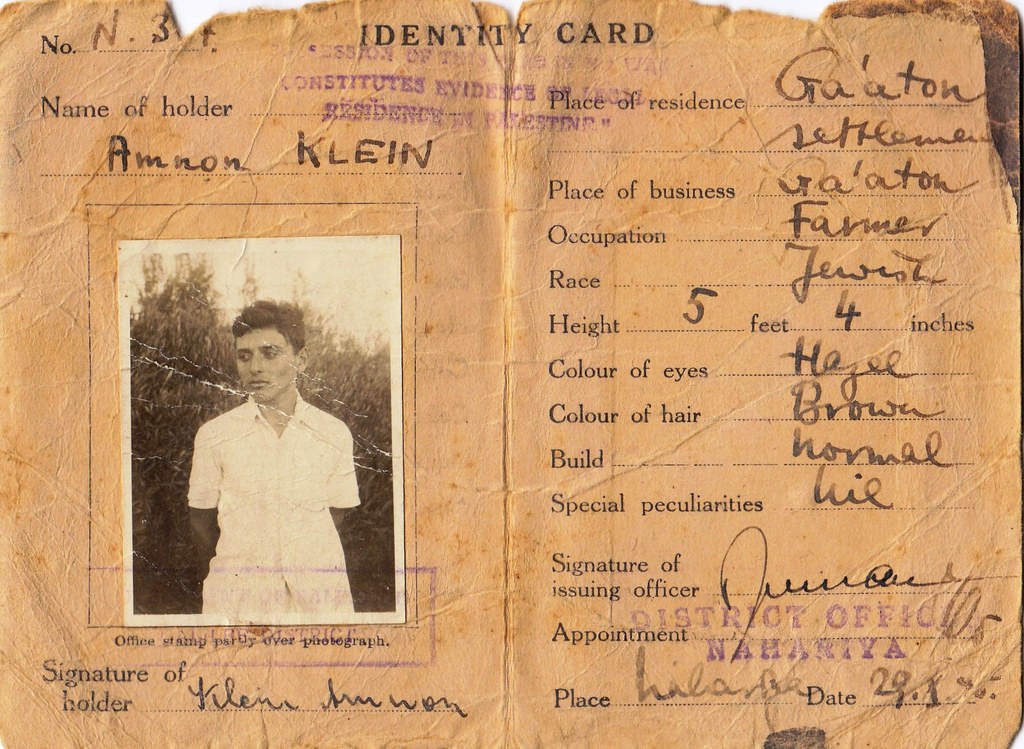 No. N. 34.
IDENTITY CARD
CONSTITUTES EVIDENCE OF LEGAL
RESIDENCE IN PALESTINE."
Name of holder
Amnon KLEIN
Office stamp partly over photograph.
Signature of
holder Klein Amnon
Place of residence Ga'aton
settlemen
Place of business Ga'aton
Occupation Farmer
Race Jewish
Height 5 feet 4 inches
Colour of eyes Hazel
Colour of hair Brown
Build normal
Special peculiarities Nil
Signature of
issuing officer
DISTRICT OFFIC
Appointment
NAHARIYA
Place Date